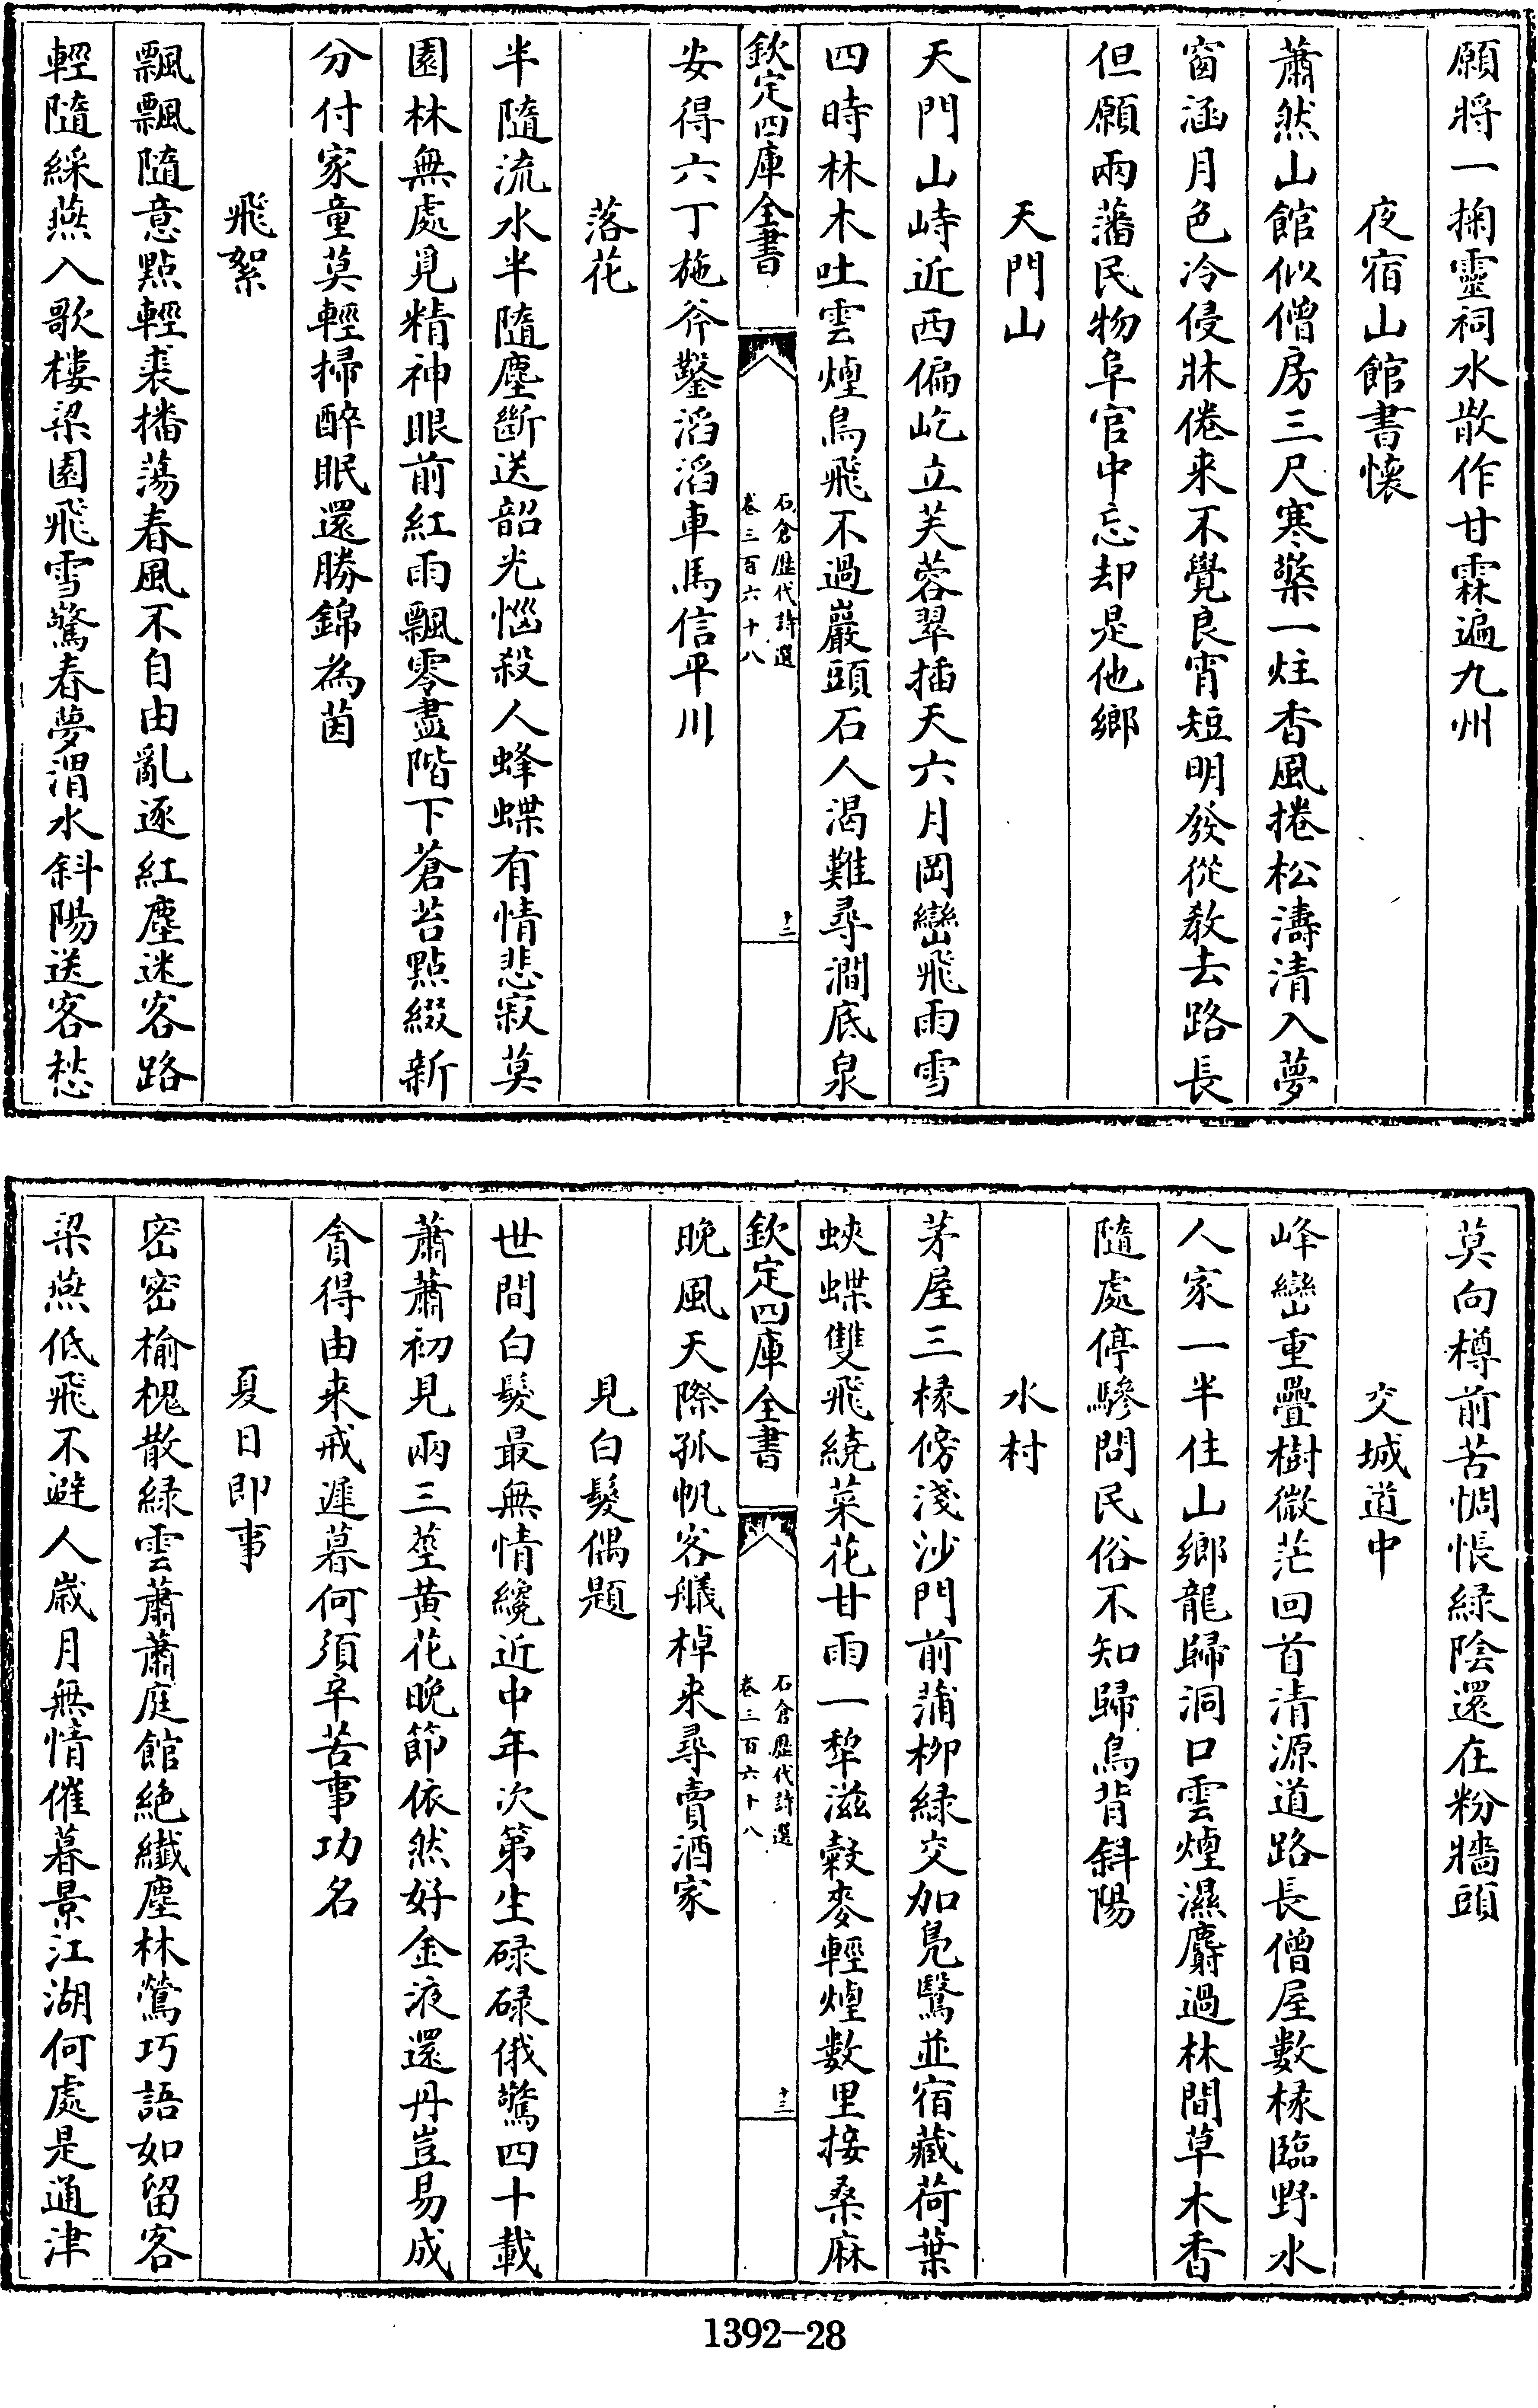 願將一掬靈祠水散作甘霖遍九州
夜宿山館書懷
蕭然山館似僧房三尺寒檠一炷香風捲松濤清入夢
窗涵月色冷侵牀倦來不覺良宵短明發從教去路長
但願兩藩民物阜官中忘却是他鄉
天門山
天門山峙近西偏屹立芙蓉翠插天六月岡巒飛雨雪
四時林木吐雲煙鳥飛不過巖頭石人渴難尋澗底泉
欽定四庫全書
石倉歷代詩選
卷三百六十八
十二
安得六丁施斧鑿滔滔車馬信平川
落花
半隨流水半隨塵斷送韶光惱殺人蜂蝶有情悲寂莫
園林無處見精神眼前紅雨飄零盡階下蒼苔點綴新
分付家童莫輕掃醉眠還勝錦為茵
飛絮
飄飄隨意點輕裘播蕩春風不自由亂逐紅塵迷客路
輕隨綵燕入歌樓梁園飛雪驚春夢渭水斜陽送客愁
莫向樽前苦惆悵緑陰還在粉牆頭
交城道中
峰巒重疊樹微茫回首清源道路長僧屋數椽臨野水
人家一半住山鄉龍歸洞口雲煙濕麝過林間草木香
隨處停驂問民俗不知歸鳥背斜陽
水村
茅屋三椽傍淺沙門前蒲柳緑交加鳬鷖並宿藏荷葉
蛺蝶雙飛繞菜花甘雨一犂滋穀麥輕煙數里接桑麻
欽定四庫全書
石倉歷代詩選
卷三百六十八
十三
晚風天際孤帆客艤棹來尋賣酒家
見白髮偶題
世間白髮最無情纔近中年次第生碌碌俄驚四十載
蕭蕭初見兩三莖黄花晚節依然好金液還丹豈易成
貪得由來戒遲暮何須辛苦事功名
夏日即事
密密榆槐散緑雲蕭蕭庭館絶纖塵林鶯巧語如留客
梁燕低飛不避人歲月無情催暮景江湖何處是通津
1392-28